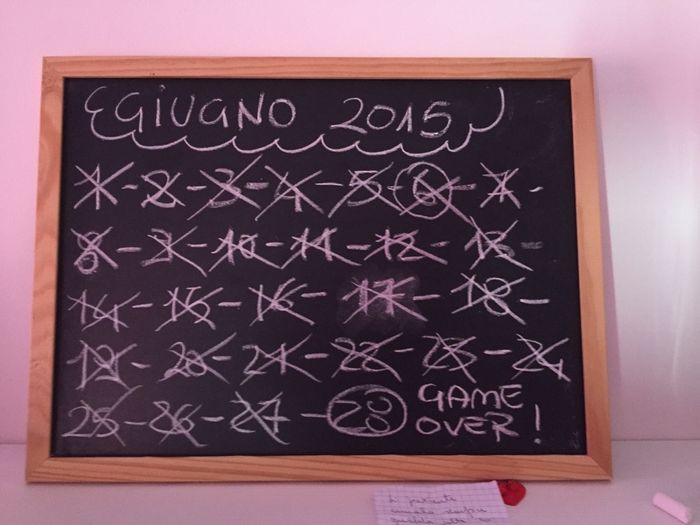 GIUGNO 2015
1 - 2 - 3 - 4 - 5 - 6 - 7 -
8 - 9 - 10 - 11 - 12 - 13 -
14 - 15 - 16 - 17 - 18 -
19 - 20 - 21 - 22 - 23 - 24
25 - 26 - 27 - 28 GAME
OVER!